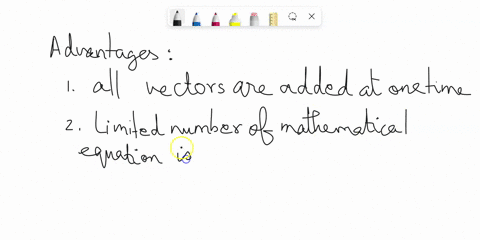 Advantages :
1. all vectors are added at one time
2. Limited number of mathematical
equation is